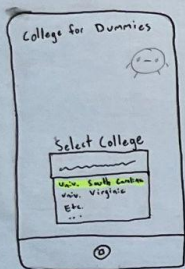 College for Dummies
Select College
Univ. South Carolina
Univ. Virginia
Etc.
...